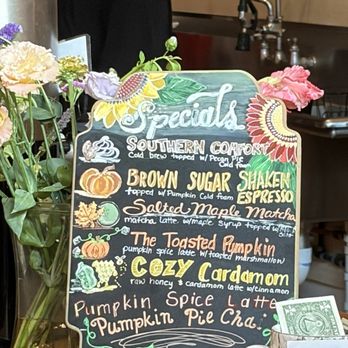 Specials
SOUTHERN COMFORT
Cold brew topped w/ Pecan Pie
Cold foam
BROWN SUGAR SHAKEN
topped w/ Pumpkin Cold foam ESPRESSO
Salted Maple Matcha
matcha latte w/ maple syrup topped w/
The Toasted Pumpkin
pumpkin spice latte w/ toasted marshmallow
COZY Cardamom
raw honey & cardamom latte w/ cinnamon
Pumpkin Spice Latte
Pumpkin Pie Chai